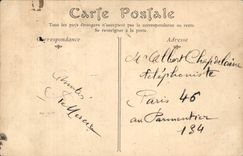 Carte Postale
Tous les pays étrangers n'acceptent pas la correspondance au recto.
Se renseigner à la poste.
Correspondance
Adresse
Mr Albert Chapdelaine
téléphoniste
Paris 46
au Parmentier
134